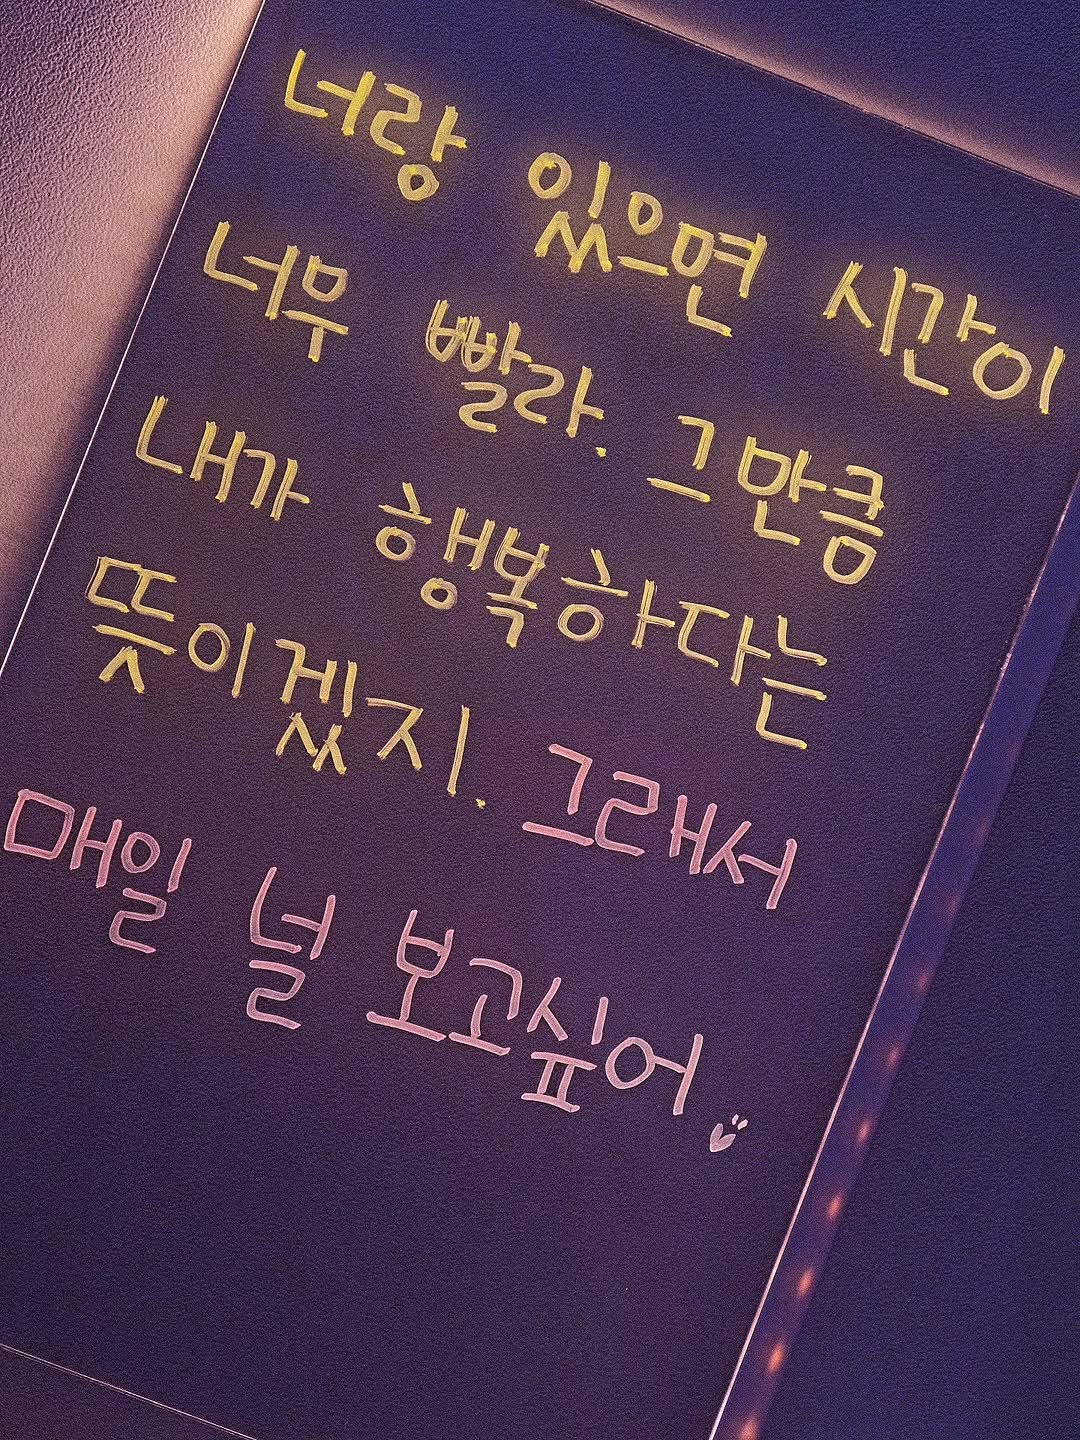 너랑 있으면 시간이
너무 빨라. 그만큼
내가 행복하다는
뜻이겠지. 그래서
매일 널 보고싶어.